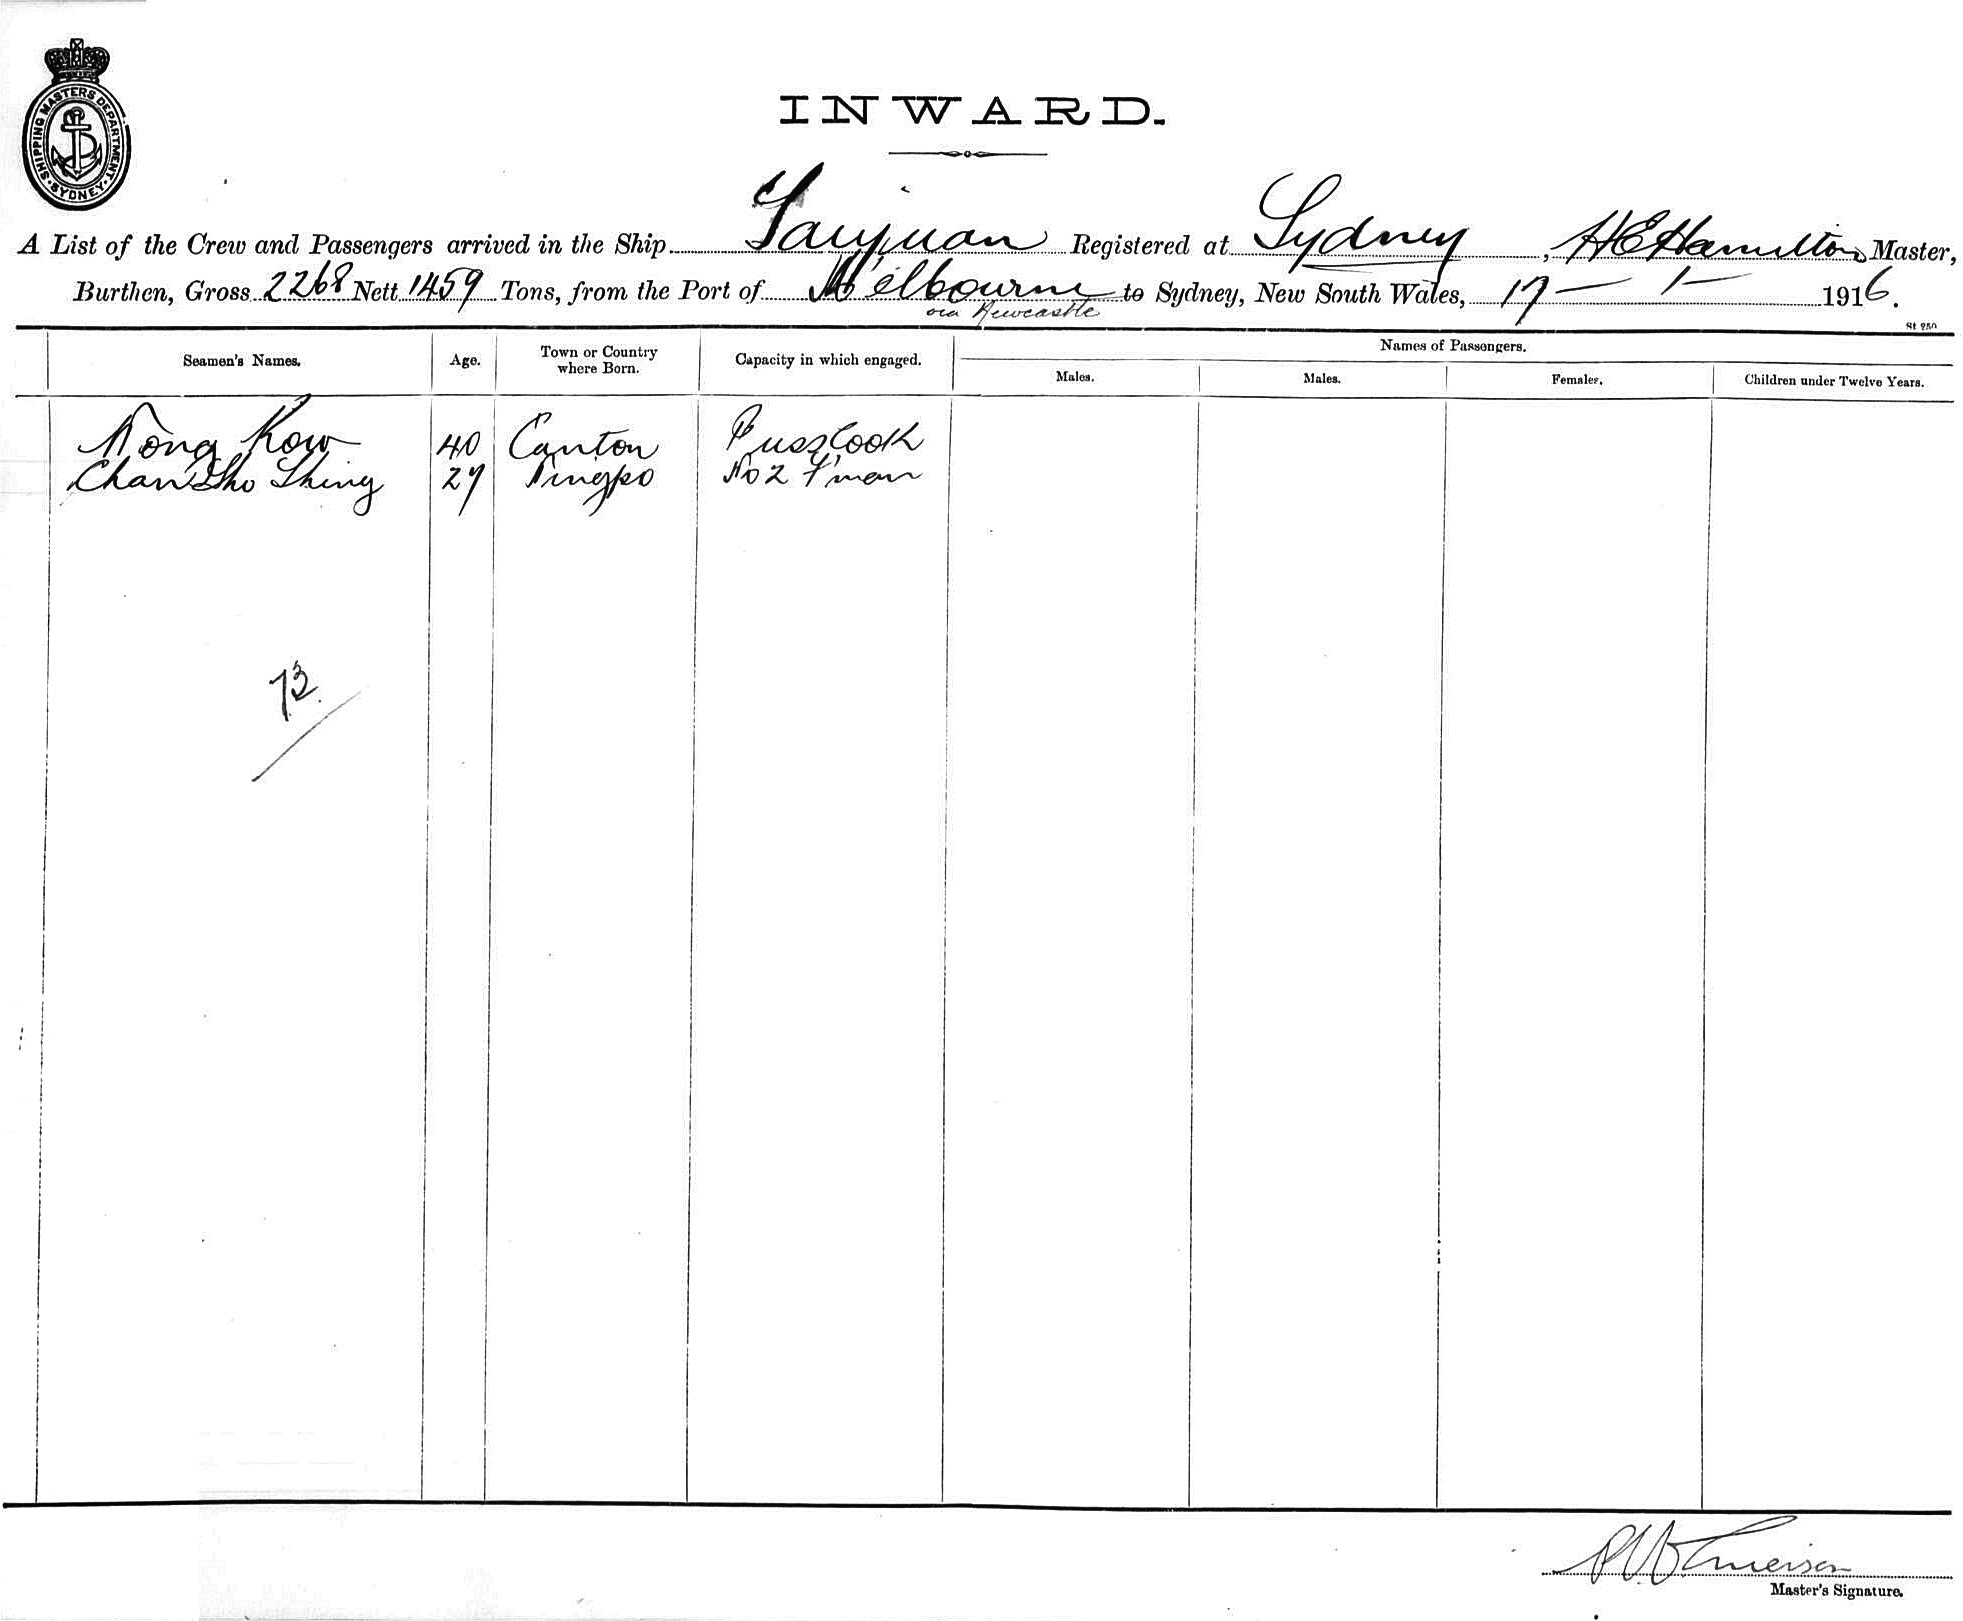 SHIPPING MASTERS DEPARTMENT. SYDNEY
INWARD.
A List of the Crew and Passengers arrived in the Ship Taiyuan Registered at Sydney, H E Hamilton Master,
Burthen, Gross 2268 Nett 1459 Tons, from the Port of Melbourne to Sydney, New South Wales, 17 - 1 - 1916.
via Newcastle
St 250
Seamen's Names. Age. Town or Country where Born. Capacity in which engaged. Names of Passengers.
Males. Males. Females. Children under Twelve Years.
Wong Kow 40 Canton Cook
Chan Sho Shing 27 Ningpo No 2 F'man
73
Master's Signature.